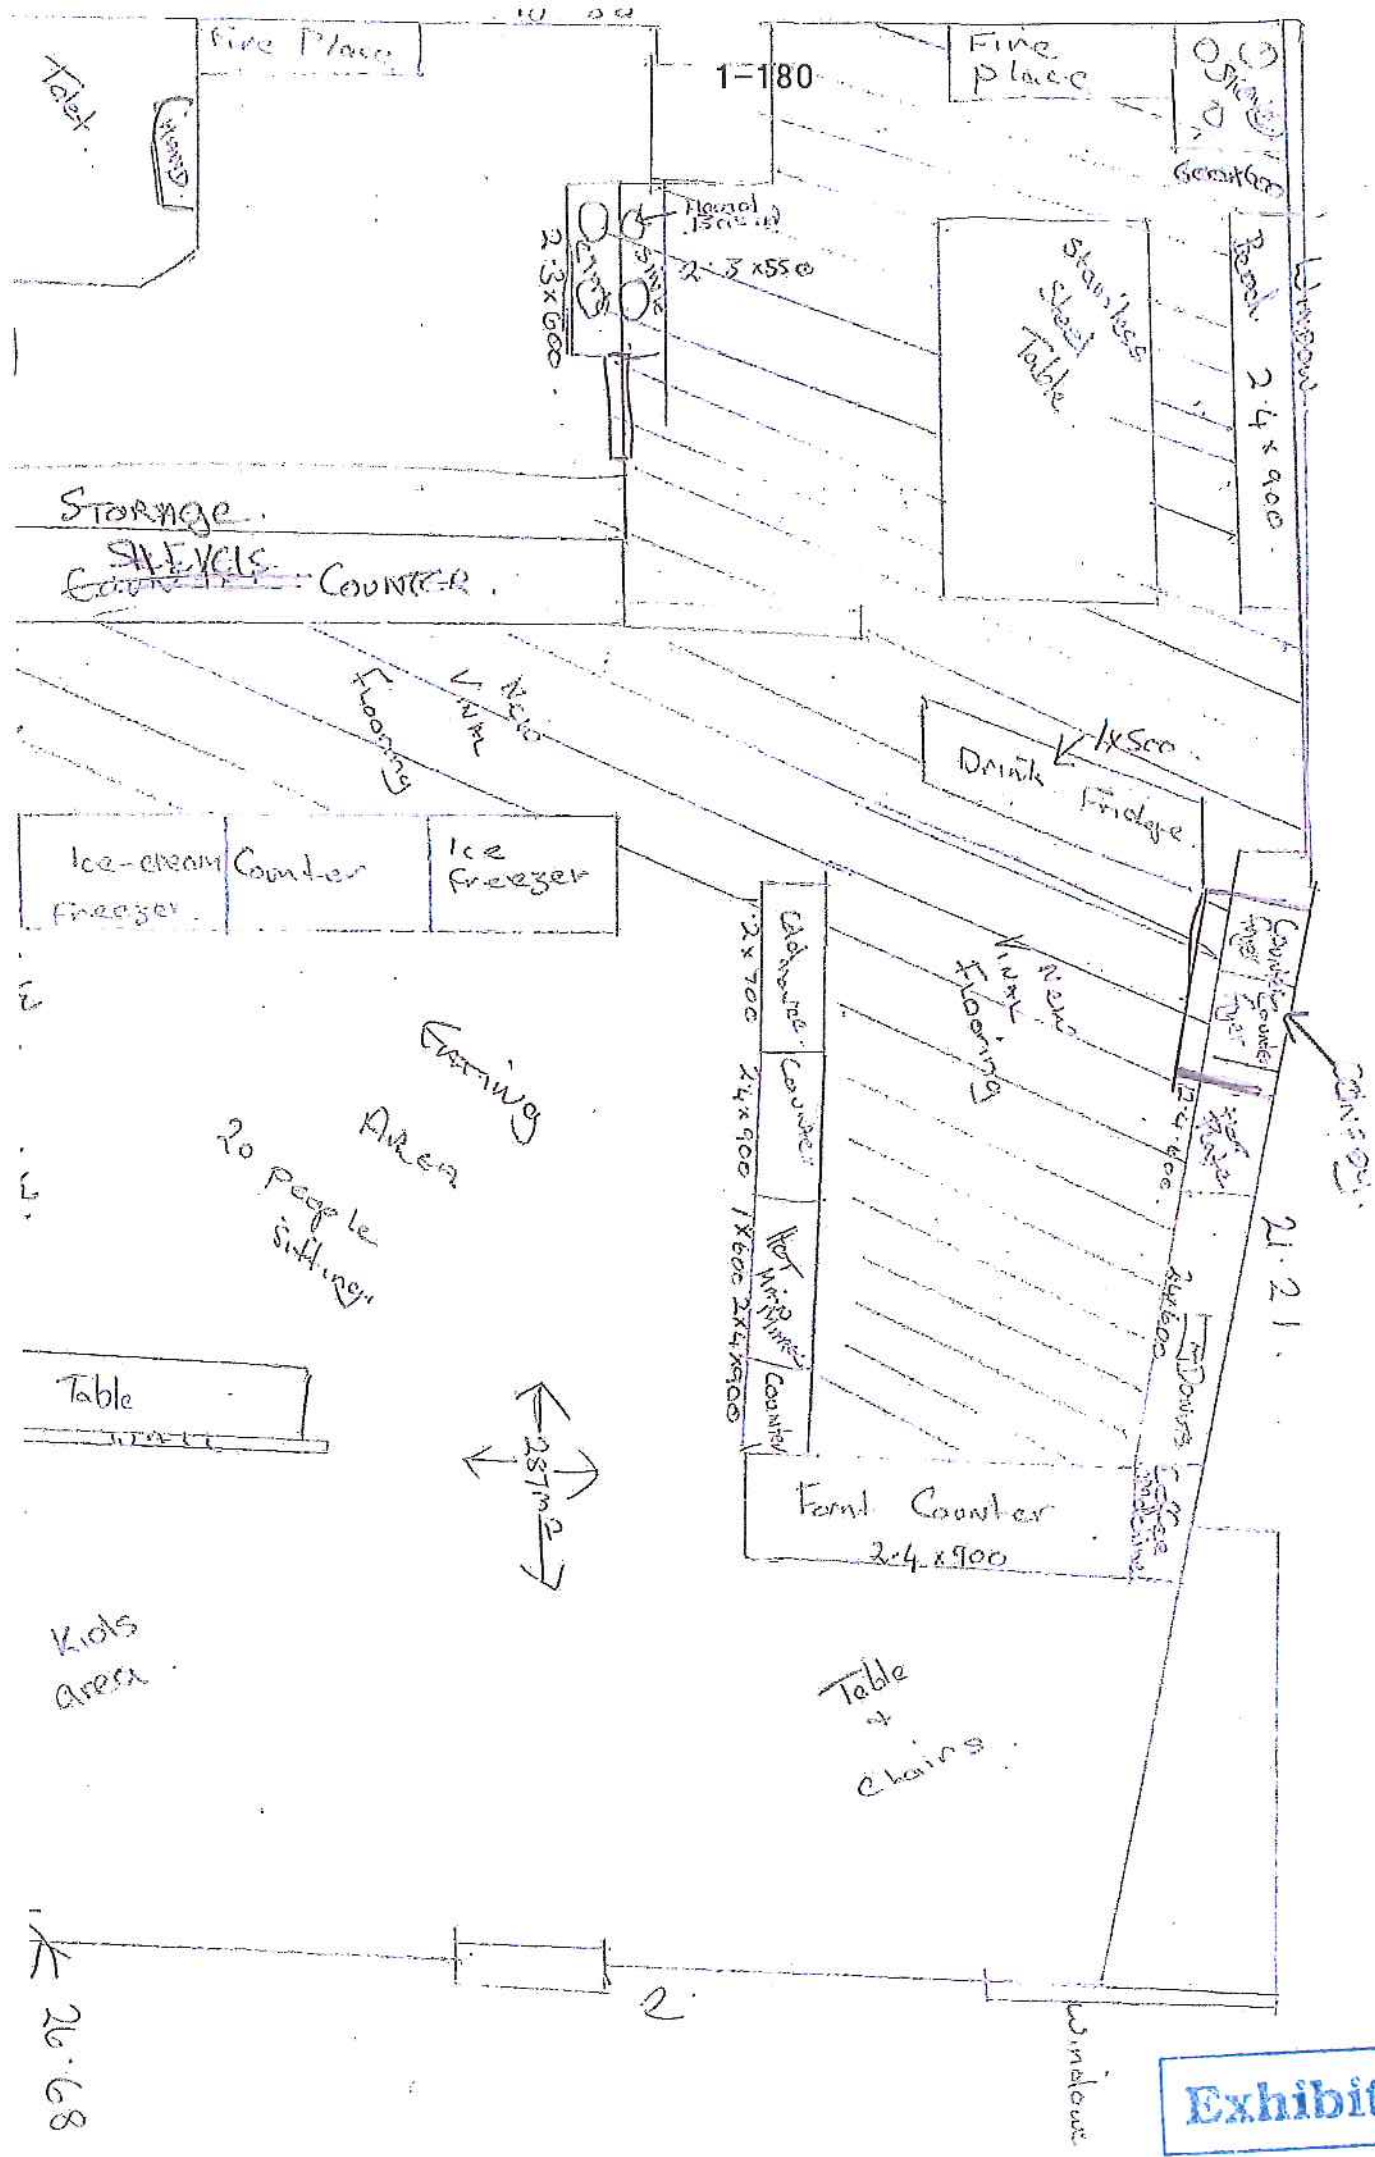 Fire Place
1-180
Fire
place
Toilet
Hand
Hand
Basin
Sink
2.3 x 550
2.3 x 600
Stainless
Steel
Table
Window
Bench 2.4 x 900
STORAGE.
SHELVES
COUNTER.
NEW
VINAL
FLOORING
1x500
Drink Fridge
Ice-cream
Freezer
Counter
Ice
Freezer
2 x 700
Counter
2.4 x 900
HOT
1 x 600
Counter
2 x 4 x 900
NEW
VINAL
FLOORING
Counter
Fryer
Counter
Fryer
Hot
Plate
2.4.600
21.21.
2.4x600
Coffee
Machine
Font Counter
2.4 x 900
EATTING
AREA
20 people
sitting
Table
287m2
Kids
area
Table
+
chairs
26.68
Window
Exhibit